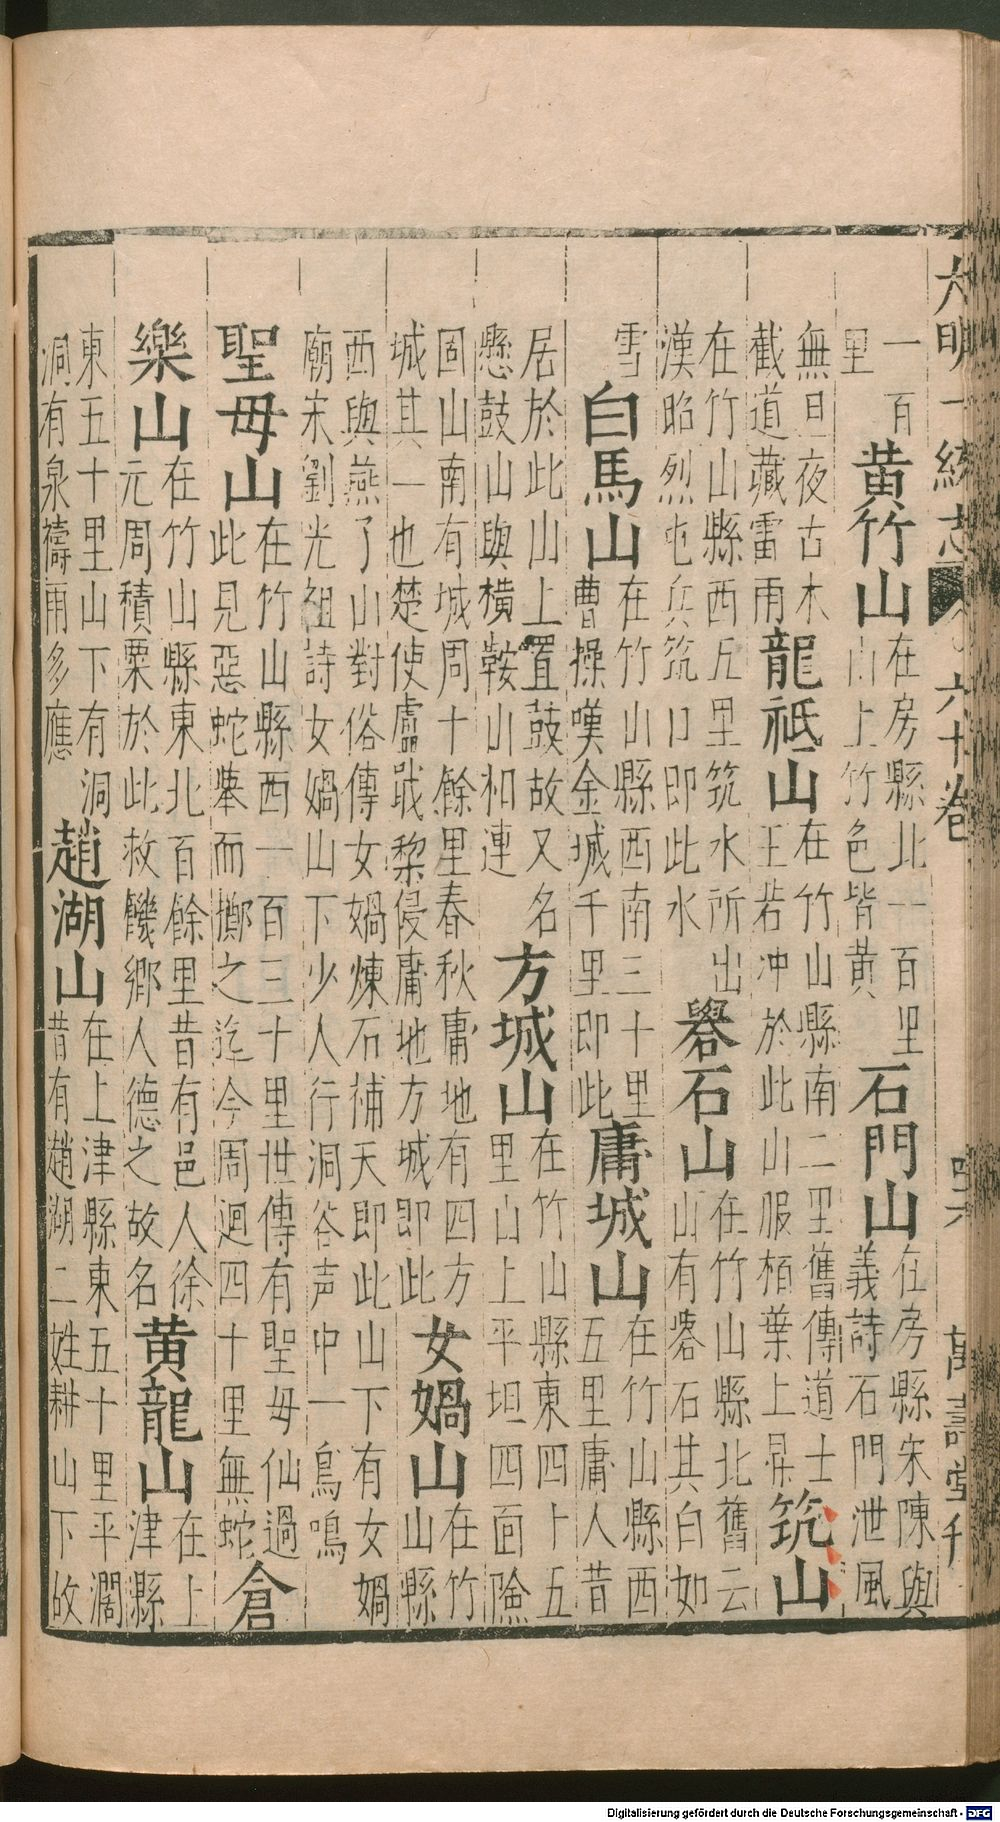 大明一統志 六十卷 萬壽堂刊
一百
里
黄竹山
在房縣北一百里
山上竹色皆黄
石門山
在房縣宋陳與
義詩石門泄風
無旦夜古木
截道藏雷雨
龍祗山
在竹山縣南二里舊傳道士
王若冲於此山服栢葉上昇
筑山
在竹山縣西五里筑水所出
漢昭烈屯兵筑口即此水
礜石山
在竹山縣北舊云
山有礜石其白如
雪
白馬山
在竹山縣西南三十里
曹操嘆金城千里即此
庸城山
在竹山縣西
五里庸人昔
居於此山上置鼓故又名
懸鼓山與橫鞍山相連
方城山
在竹山縣東四十五
里山上平坦四面險
固山南有城周十餘里春秋庸地有四方
城其一也楚使廬戢黎侵庸地方城即此
女媧山
在竹
山縣
西與燕了山對俗傳女媧煉石補天即此山下有女媧
廟宋劉光祖詩女媧山下少人行洞谷声中一鳥鳴
聖母山
在竹山縣西一百三十里世傳有聖母仙過
此見惡蛇舉而擲之迄今周迴四十里無蛇
倉
樂山
在竹山縣東北百餘里昔有邑人徐
元周積粟於此救饑鄉人德之故名
黄龍山
在上
津縣
東五十里山下有洞
洞有泉禱雨多應
趙湖山
在上津縣東五十里平濶
昔有趙湖二姓耕山下故
Digitalisierung gefördert durch die Deutsche Forschungsgemeinschaft - DFG